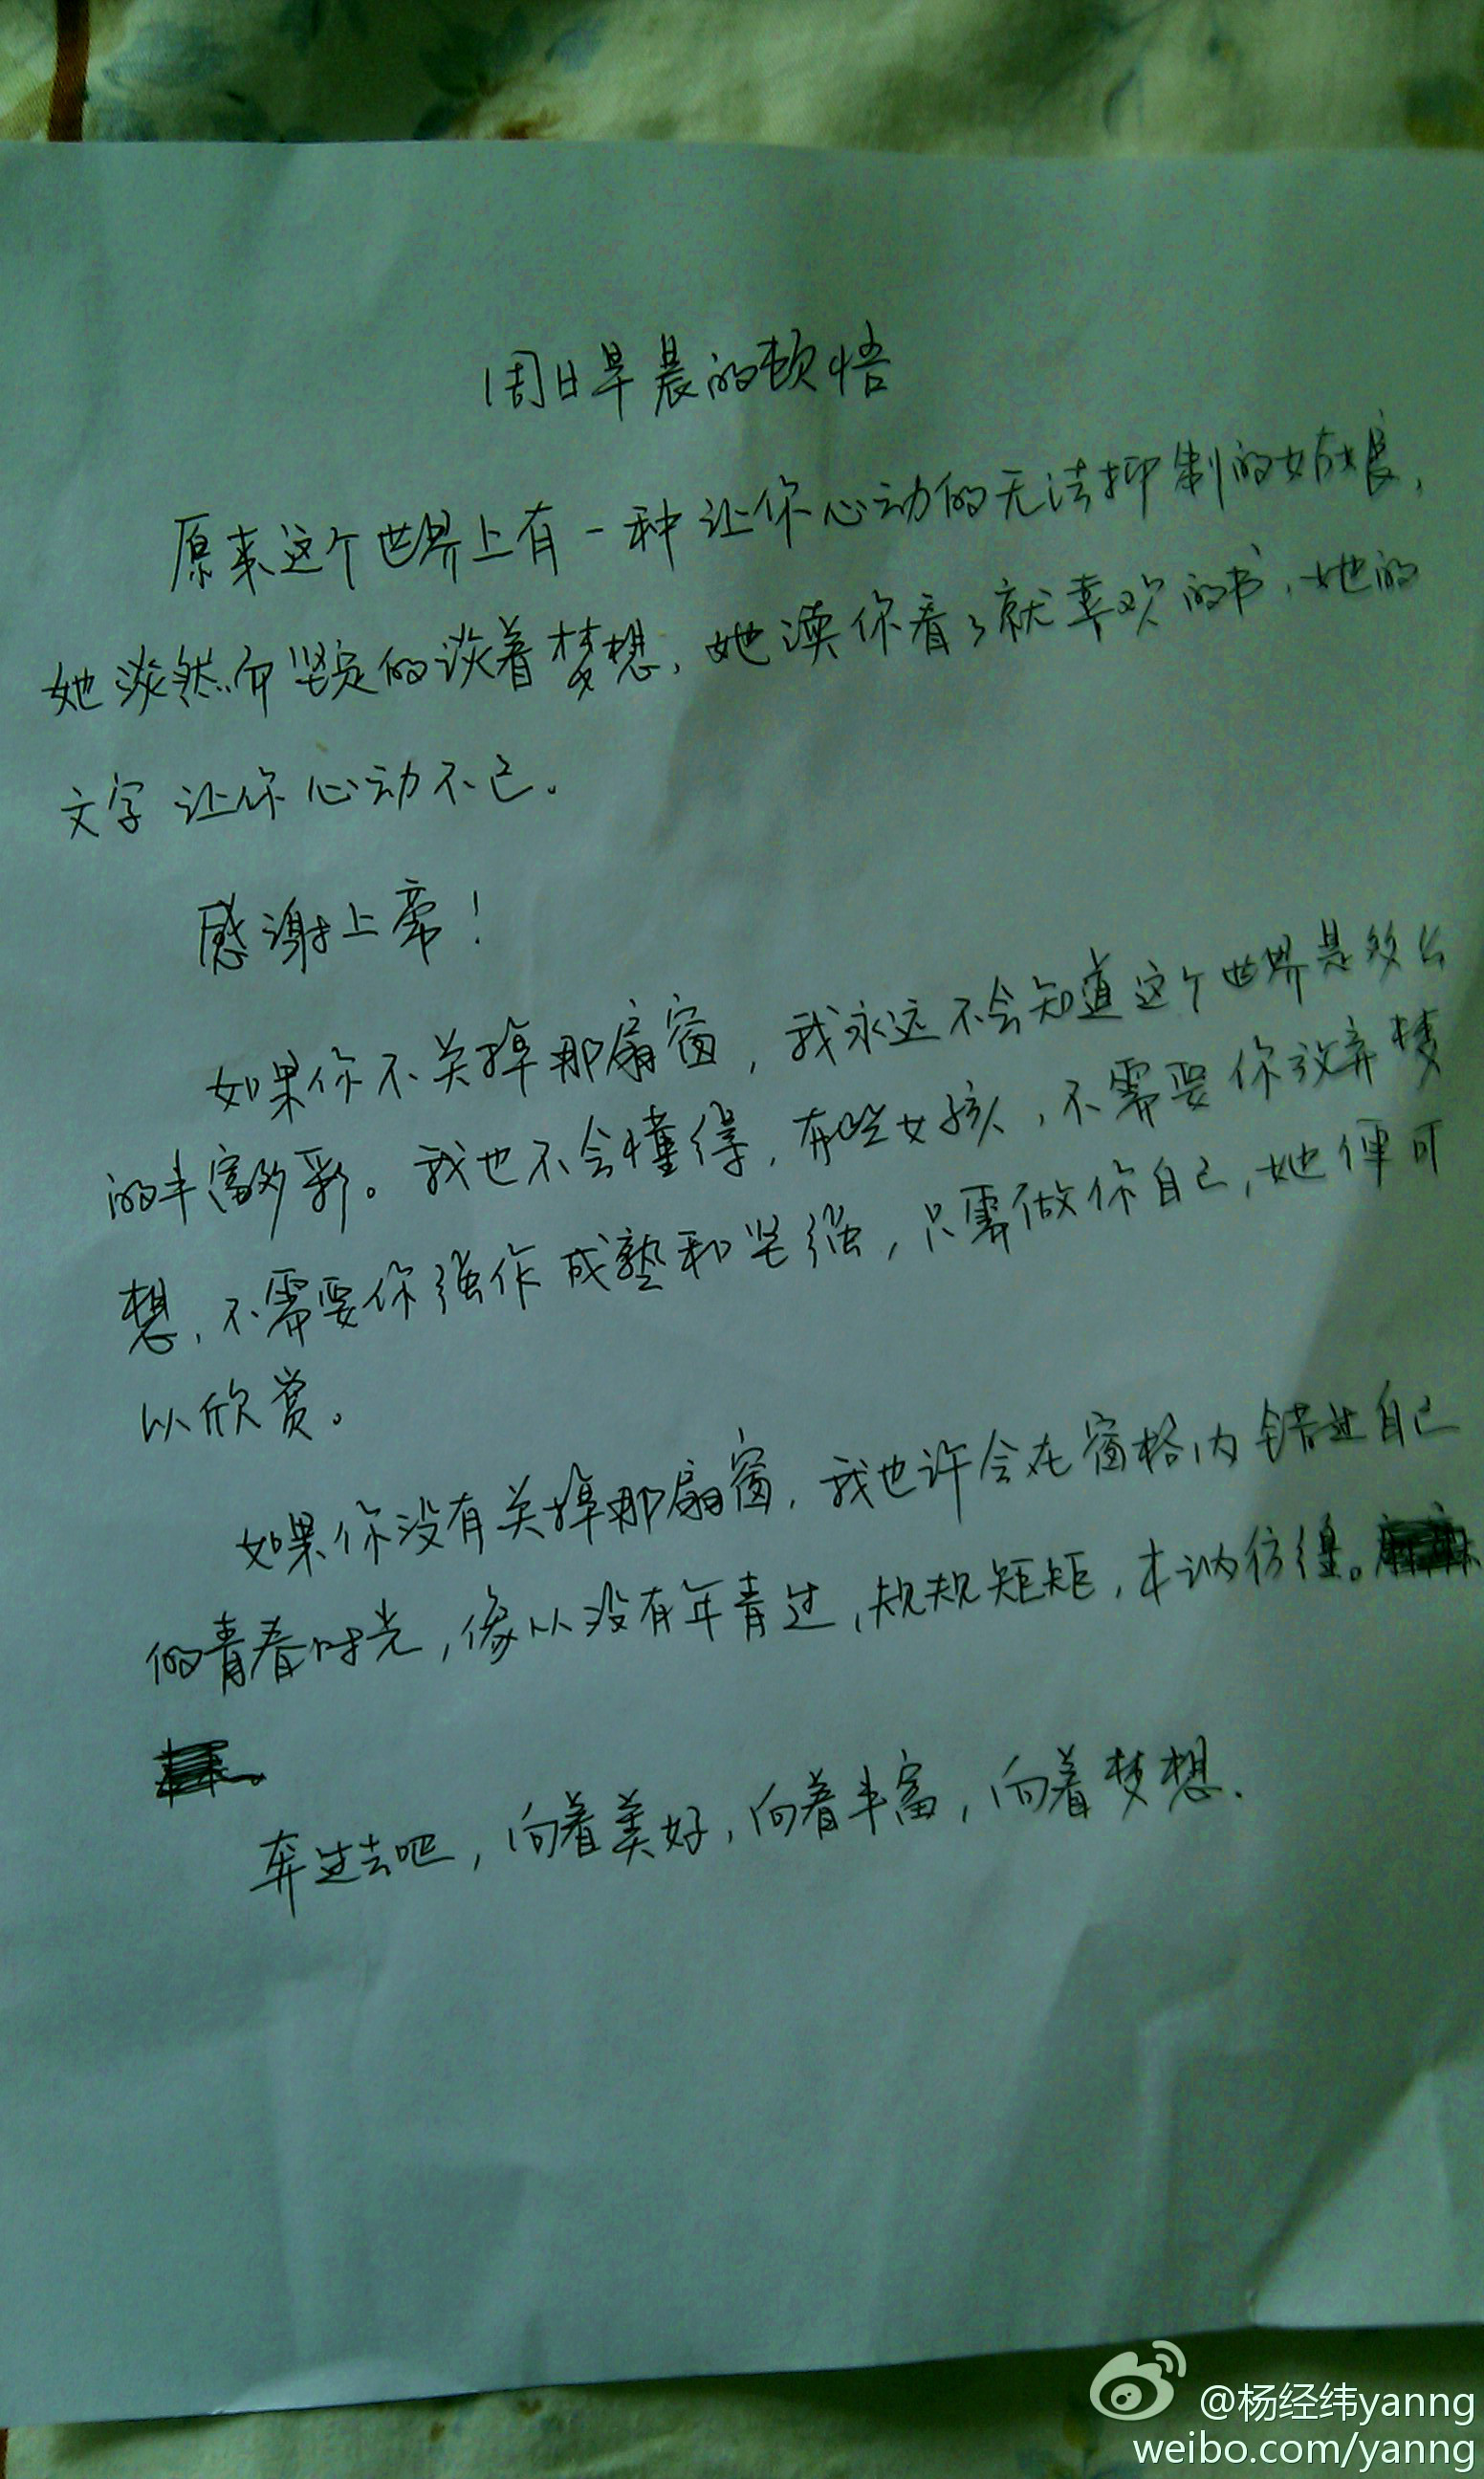 周日早晨的顿悟
原来这个世界上有一种让你心动的无法抑制的姑娘，
她淡然而坚定的谈着梦想，她读你看了就喜欢的书，她的
文字让你心动不已。
感谢上帝！
如果你不关掉那扇窗，我永远不会知道这个世界是多么
的丰富多彩。我也不会懂得，有些女孩，不需要你放弃梦
想，不需要你强作成熟和坚强，只需做你自己，她便可
以欣赏。
如果你没有关掉那扇窗，我也许会在窗格内错过自己
的青春时光，像从没有年青过，规规矩矩，木讷彷徨。
奔过去吧，向着美好，向着丰富，向着梦想．
@杨经纬yanng
weibo.com/yanng